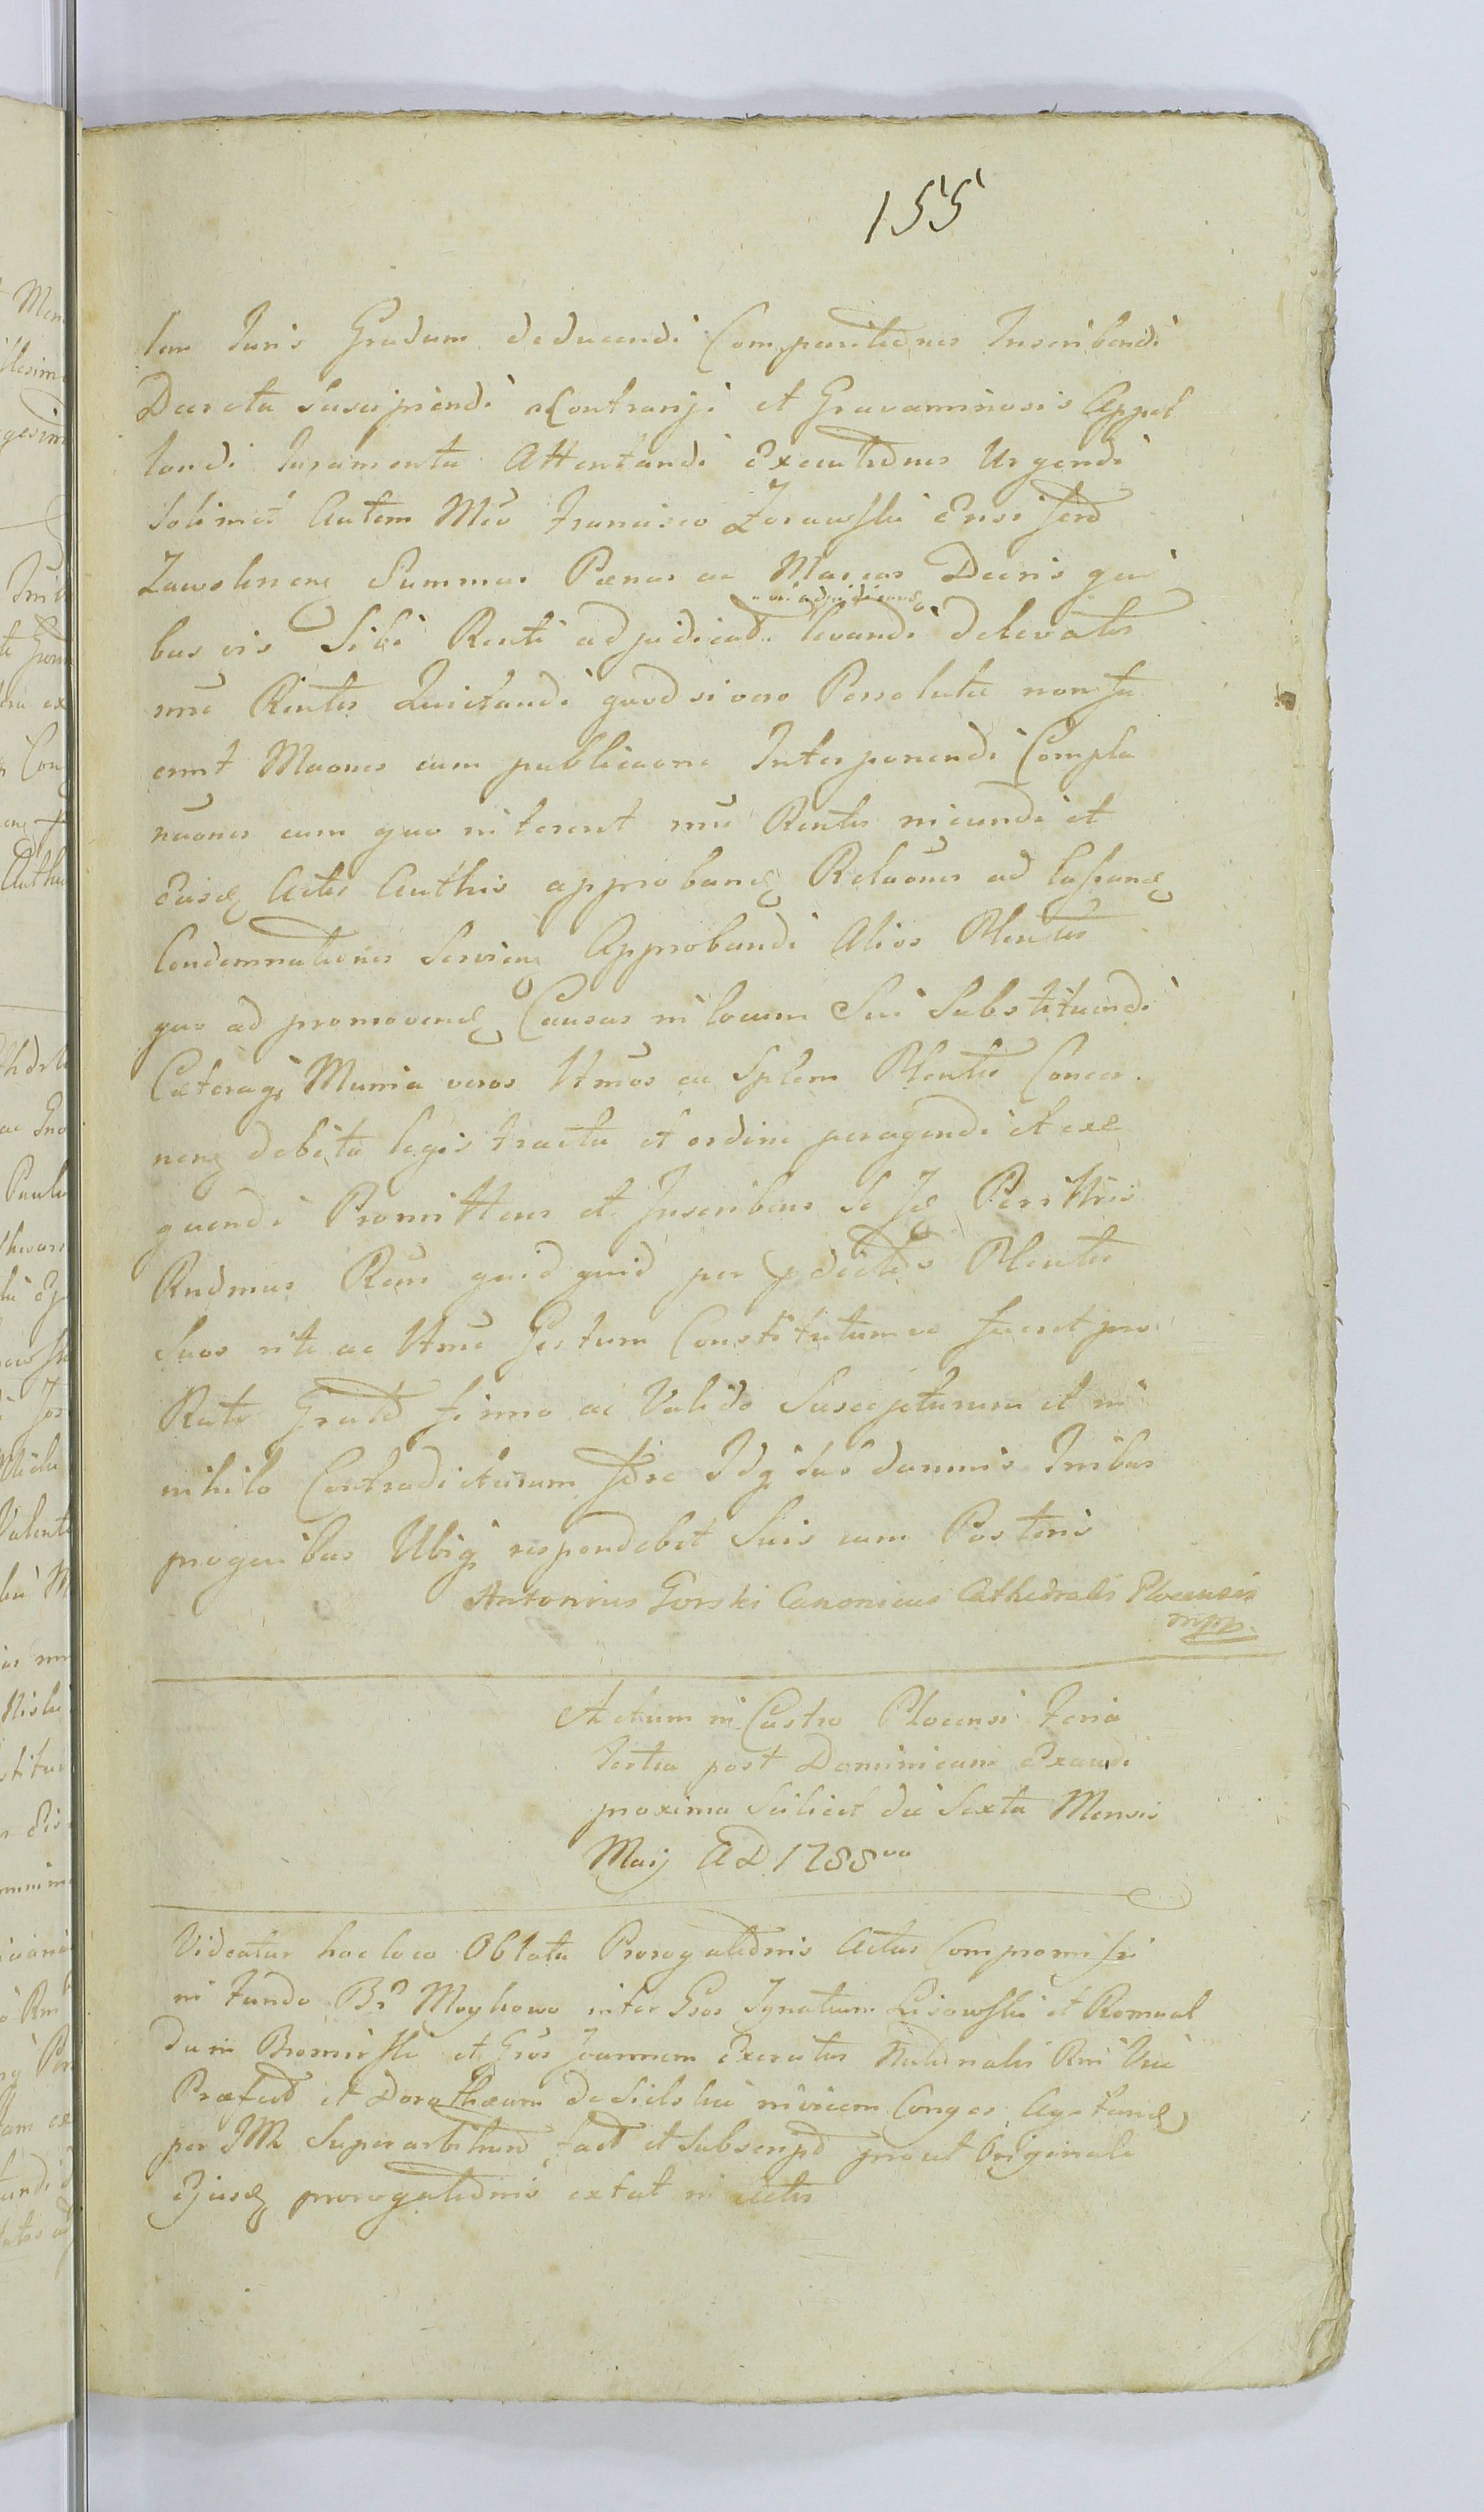 155
lem Juris Gradum deducendi Comparitiones Inscribendi
Decreta suscipiendi a Contrarijs et Gravaminosis Appel
landi Juramenta Attentandi Executiones Urgendi
Solimet Autem Mco Francisco Zorawski Ensifero
Zawolinens Summas Pænas ac Marcas Decris qui
busvis Sibi Renti adjudicatt levandi delevatis
Rentes Quietandi quod si vero Persolutæ non fu
erint Maones cum publicaone Interponendi Compla
naones cum quo niterent Rentes ineundi et
Eisd Actis Authis approband Relaones ad lassand
Condemnationes Servien Approbandi Alios Plentes
quo ad promovend Causas in locum Sui Substituendi
Cæteraq Munia veros ltmos ac Splem Plentes Concer
nen debito legis tractu et ordine peragendi et exe
quendi Promittens et Inscribens Se Id Perittris
Rndmus Rens quid quid per pdictos Plentes
Suos rite ac ltme Gestum Constitutumve fuerit pro
Rato Grato firmo ac Valido Suscepturum et in
nihilo Contradicturum fore Idq sub damnis Inibus
proquibus Ubiq respondebit Suis cum Posteris
Antonius Gorski Canonicus Cathedralis Plocensis
mpp.
Actum in Castro Plocensi Feria
Tertia post Dominicam Exaudi
proxima Scilicet die Sexta Mensis
Maij AD 1788vo
Videatur hoc loco Oblata Prorogationis Actus Compromissi
in fundo Br Moykowo inter Gsos Ignatium Lisowski et Romual
dum Bromirski et Gsos Joannem Exercitus Nationalis Rni Vice
Præfect et Dorothæam de Sielskie invicem Conges Agitand
per IM Superarbitrum fact et Subscript prout Originale
Ejusd prorogationis extat in Actis